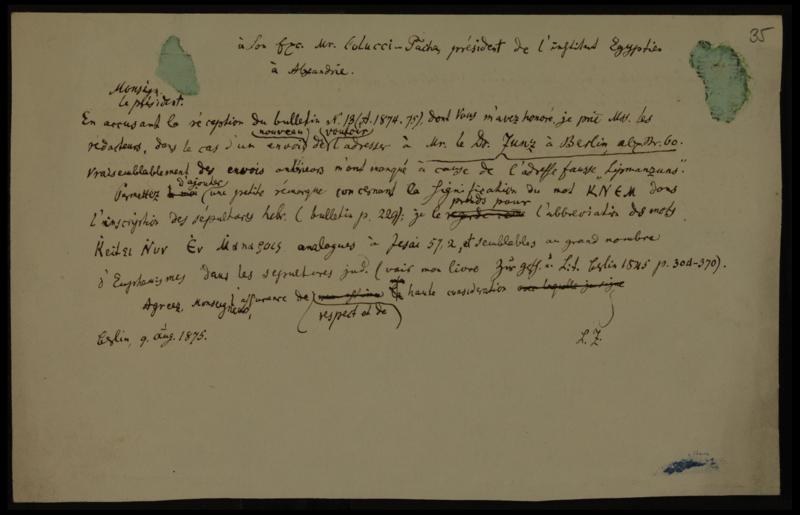 35
à Son Exc. Mr. Colucci-Pacha, président de l'institut Egyptien
à Alexandrie.
Monseign.
le président.
En accusant la réception du bulletin N. 13 (A. 1874-75), dont Vous m'avez honoré, je prie Mss. les
nouveau vouloir
rédacteurs, dans le cas d'un envoi de l'adresser à Mr. le Dr. Zunz à Berlin,
vraisemblablement des envois antérieurs m'ont manqué à cause de l'adresse fausse
d'ajouter
Permettez à moi une petite remarque concernant la signification du mot KNEM dans
prends pour
l'inscription des sépultures hebr. (bulletin p. 229); je le regarde l'abbreviation des mots
Κεῖται Νυν Ἐν analogues à Jesai 57, 2, et semblables au grand nombre
d'Euphemismes dans les sepultures jud. (vois mon livre Zur Gesch. u. Lit. Berlin 1845 p. 304-370).
Agreez, Monseigneur, l'assurance de mon estime la haute consideration avec laquelle je signe
respect et de
Berlin, 9. aug. 1875.
L. Z.